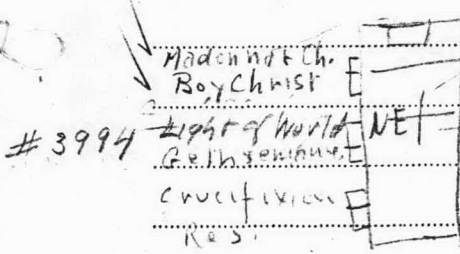 Madonna & Ch.
Boy Christ
#3994 Light of World NE
Gethsemane
Crucifixion
Res.